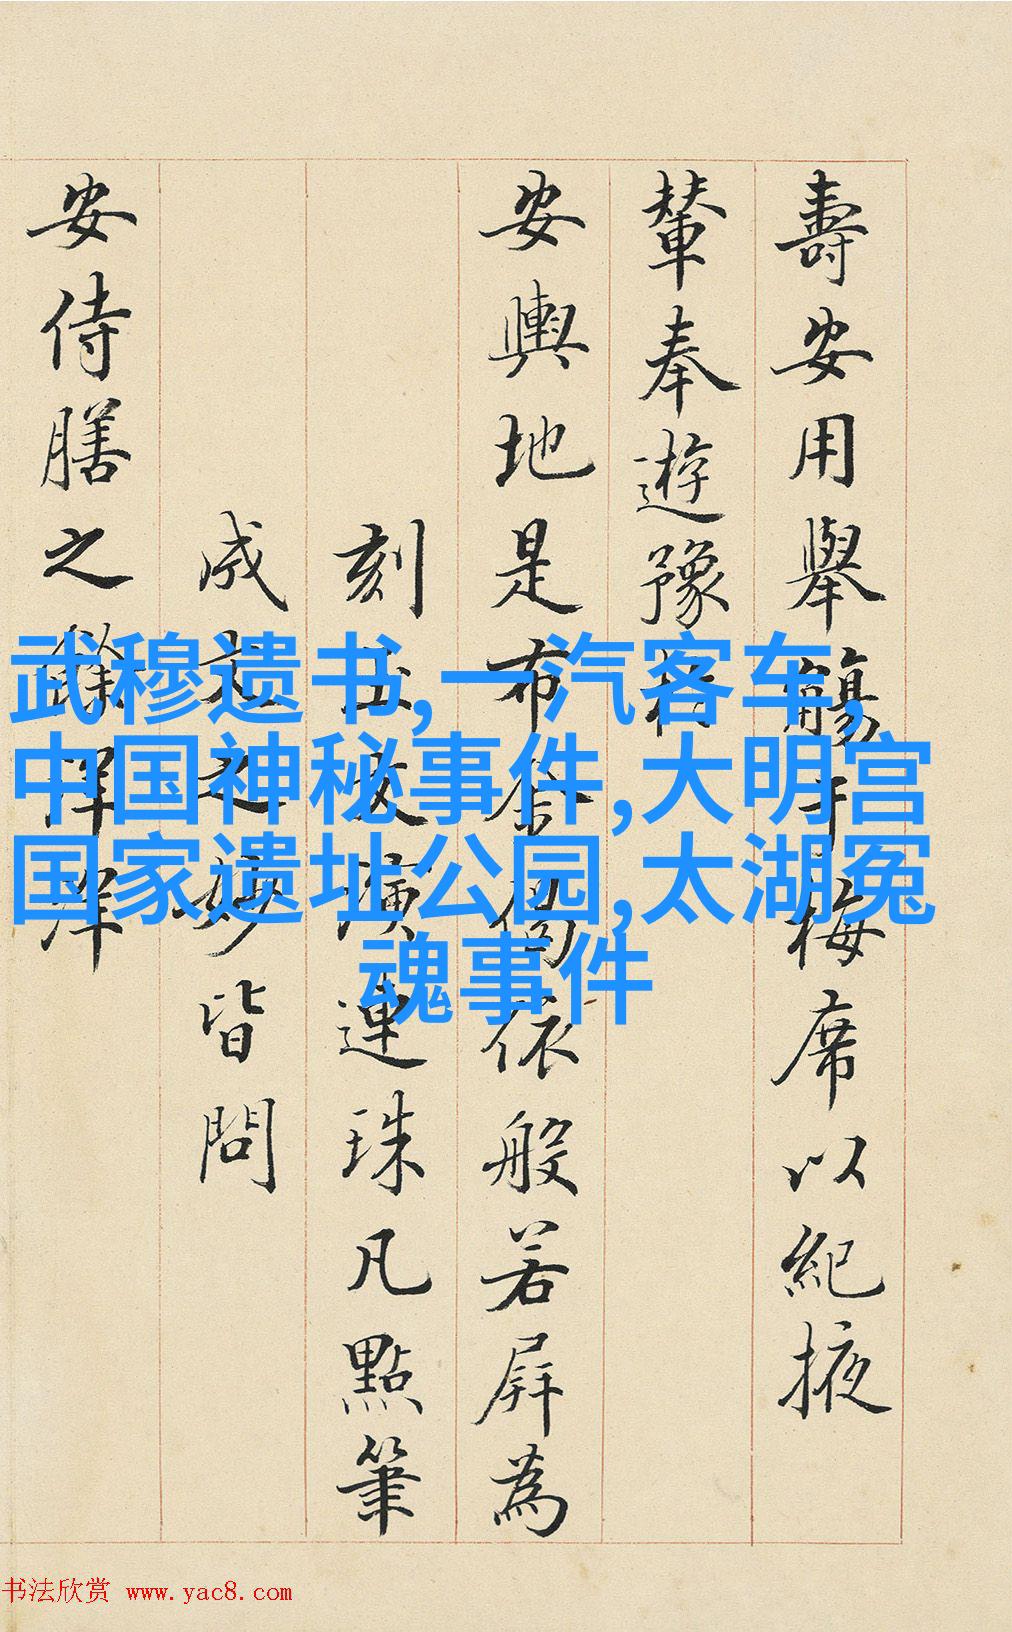 壽安用舉觴于梅席以紀掖
輦奉遊豫
安輿地是布金偈依般若屏為
刻玉文演連珠凡點筆
成之妙皆問
安侍膳之餘
武穆遗书,一汽客车,
中国神秘事件,大明宫
国家遗址公园,太湖冤
魂事件
书法欣赏 www.yac8.com